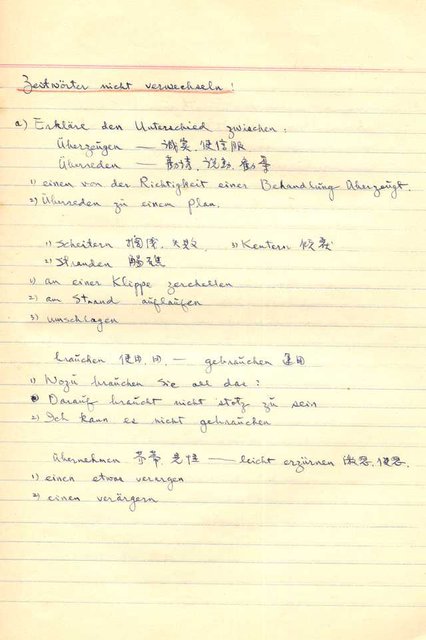 Zeitwörter nicht verwechseln!
a) Erkläre den Unterschied zwischen:
Überzeugen — 誠実, 使信服
Überreden —
1) einen von der Richtigkeit einer Behandlung überzeugt.
2) Überreden zu einem Plan.
1) Scheitern 擱浅, 失敗 3) Kentern
2) Stranden 觸礁
1) an einer Klippe zerschellen
2) am Strand auflaufen
3) umschlagen
brauchen 使用, 用, — gebrauchen 適用
1) Wozu brauchen Sie all das?
Darauf braucht nicht stolz zu sein
2) Ich kann es nicht gebrauchen
Übernehmen — leicht erzürnen 激怒, 使怒.
1) einen etwas verargen
2) einen verärgern